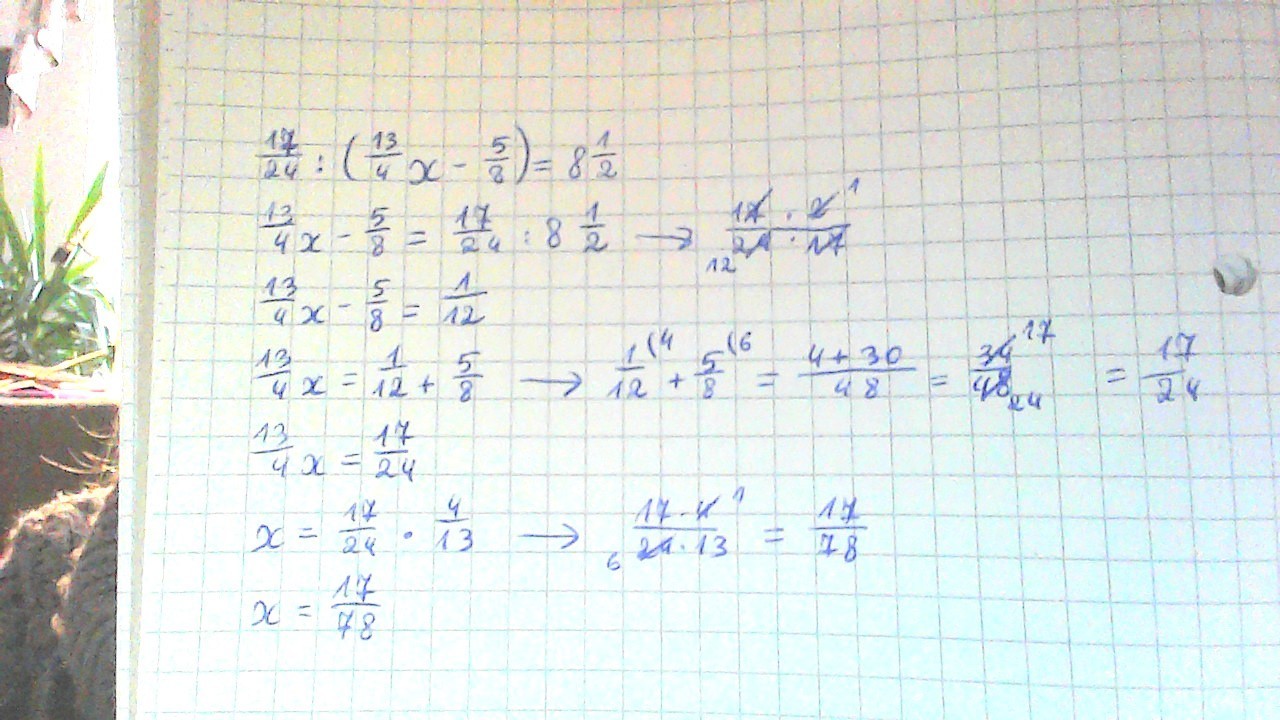 17/24 : (13/4 x - 5/8) = 8 1/2
13/4 x - 5/8 = 17/24 : 8 1/2 → 17 · 2 1 / 12 24 · 17
13/4 x - 5/8 = 1/12
13/4 x = 1/12 + 5/8 → 1/12 (4 + 5/8 (6 = 4+30/48 = 34 17 / 48 24 = 17/24
13/4 x = 17/24
x = 17/24 · 4/13 → 17 · 4 1 / 6 24 · 13 = 17/78
x = 17/78